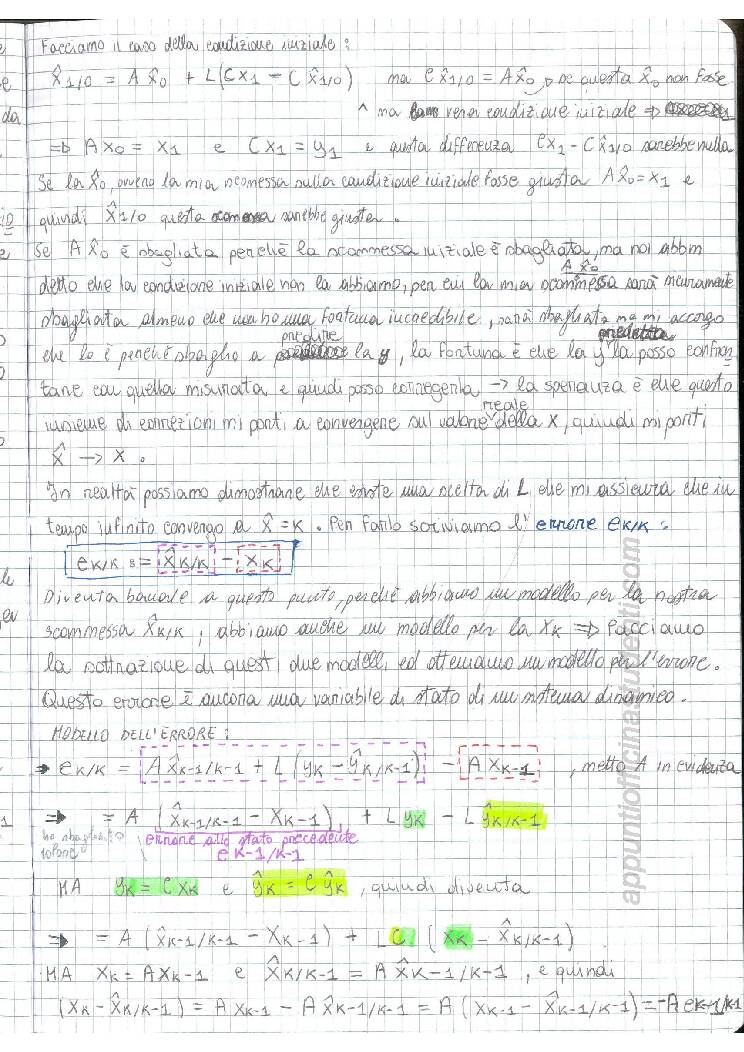 Facciamo il caso della condizione iniziale:
x̂1/0 = A x̂0 + L(Cx1 − C x̂1/0) ma C x̂1/0 = A x̂0 → se questa x̂0 non fosse
^ ma vera condizione iniziale ⇒
⇒ A x0 = x1 e C x1 = y1 e questa differenza Cx1 − C x̂1/0 sarebbe nulla
Se la x̂0, ovvero la mia scommessa sulla condizione iniziale fosse giusta A x̂0 = x1 e
quindi x̂1/0 questa scommessa sarebbe giusta.
Se A x̂0 è sbagliata perché la scommessa iniziale è sbagliata, ma noi abbiam
detto che la condizione iniziale non la abbiamo, per cui la mia scommessa A x̂0 sarà sicuramente
sbagliata almeno che non ho una fortuna incredibile, sarà sbagliata ma mi accorgo
che lo è perché sbaglio a predire la y, la fortuna è che la y predetta la posso confron
tare con quella misurata e quindi posso correggerla → la speranza è che questo
insieme di correzioni mi porti a convergere sul valore reale della x, quindi mi porti
x̂ → x.
In realtà possiamo dimostrare che esiste una scelta di L che mi assicura che in
tempo infinito convergo a x̂ = x. Per farlo scriviamo l'errore eK/K:
eK/K := x̂K/K − xK
Diventa banale a questo punto, perché abbiamo un modello per la nostra
scommessa x̂K/K, abbiamo anche un modello per la xK ⇒ Facciamo
la sottrazione di questi due modelli, ed otteniamo un modello per l'errore.
Questo errore è ancora una variabile di stato di un sistema dinamico.
MODELLO DELL'ERRORE:
→ eK/K = A x̂K-1/K-1 + L(yK − ŷK/K-1) − A xK-1 , metto A in evidenza
⇒ = A (x̂K-1/K-1 − xK-1) + L yK − L ŷK/K-1
errore allo stato precedente
eK-1/K-1
MA yK = C xK e ŷK = C ŷK , quindi diventa
⇒ = A (x̂K-1/K-1 − xK-1) + LC (xK − x̂K/K-1)
MA xK = A xK-1 e x̂K/K-1 = A x̂K-1/K-1 , e quindi
(xK − x̂K/K-1) = A xK-1 − A x̂K-1/K-1 = A (xK-1 − x̂K-1/K-1) = −A eK-1/K-1
appuntiofficinastudenti.com